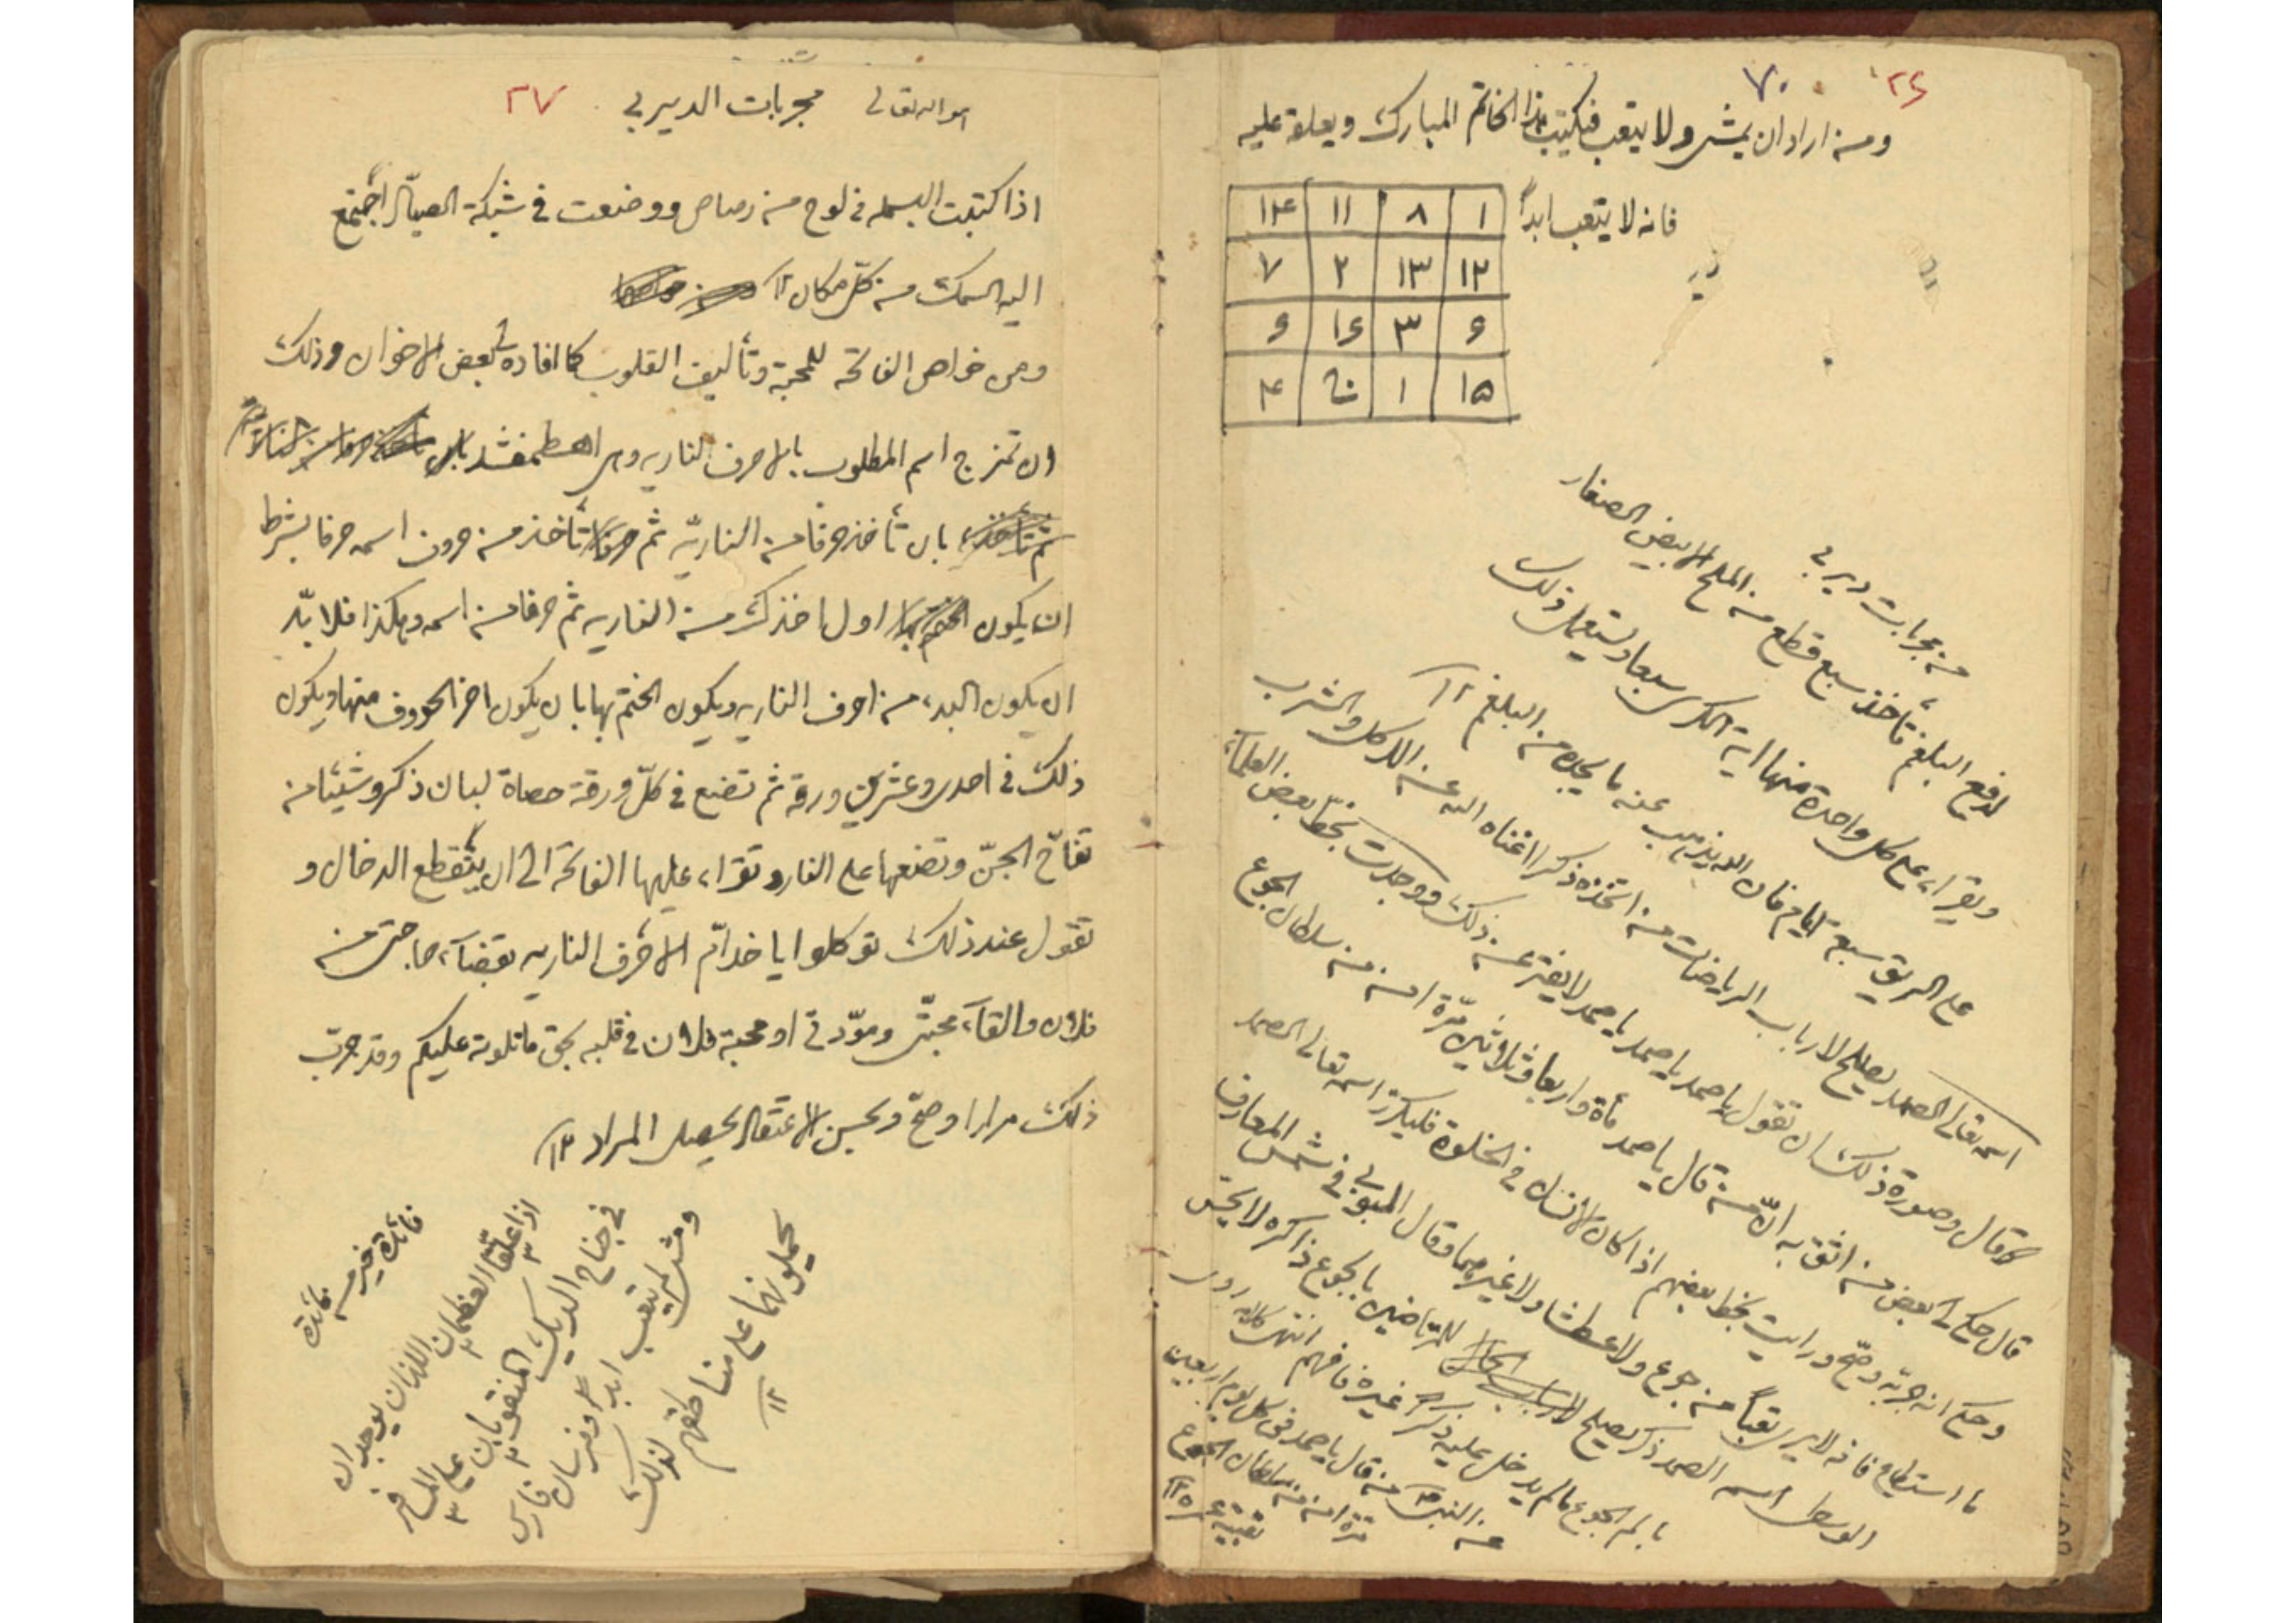 ٢٦ ٧٠
ومن اراد ان يمشي ولا يتعب فيكتب هذا الخاتم المبارك ويعلقه عليه
فانه لا يتعب ابداً
١ ٨ ١١ ١٤
١٢ ١٣ ٢ ٧
٦ ٣ ١٦ ٩
١٥ ١ ٤
من مجربات ديربي
لدفع البلغم تأخذ سبع قطع من الملح الابيض الصغار
ويقراء على كل واحدة منها اية الكرسي سبعا ويستعمل ذلك
على الريق سبعة ايام فان الله يذهب عنه ما يجده من البلغم ١٢
اسمه تعالى الصمد يصلح لارباب الرياضات من اتخذه ذكرا اغناه الله عن الاكل والشرب
قال وصورة ذلك ان تقول يا صمد يا صمد يا صمد لا يفتر عن ذلك ووجدت بخط بعض العلماء
قال حكى لي بعض من اثق به ان من قال يا صمد مأة واربعا وثلاثين مرة امن من سلطان الجوع
وحكى انه جربه وصح ورايت بخط بعضهم اذا كان الانسان في الخلوة فليكرر اسمه تعالى الصمد
ما استطاع فانه لا يرى تعباً من جوع ولا عطش ولا غيرهما وقال البوني في شمس المعارف
الوسطى اسمه الصمد ذكر يصلح للمرتاضين بالجوع ذاكره لا يحس
بالم الجوع ما لم يدخل عليه ذكر غيره فافهم انتهى كلامه روى
عن النبي ص من قال يا صمد في كل يوم اربعين
مرة امن من سلطان الجوع
هو الله تعالى مجربات الديربي ٢٧
اذا كتبت البسمله في لوح من رصاص ووضعت في شبكة الصياد اجتمع
اليه السمك من كل مكان ١٢
ومن خواص الفاتحه للمحبة وتأليف القلوب كما افاده لي بعض الاخوان وذلك
ان تمزج اسم المطلوب بالاحرف الناريه وهي اهطمفشذ
بان تأخذ حرفا من الناريّه ثم تأخذ من حروف اسمه حرفا بشرط
ان يكون اول اخذك من الناريه ثم حرفا من اسمه وهكذا فلا بدّ
ان يكون البدء من احرف الناريه ويكون الختم بها بان يكون اخر الحروف منها ويكون
ذلك في احدى وعشرين ورقه ثم تضع في كلّ ورقة حصاة لبان ذكر وشيئا من
تفاح الجنّ وتضعها على النار وتقراء عليها الفاتحة الى ان ينقطع الدخان و
تقول عند ذلك توكلوا يا خدّام الاحرف الناريه بقضآء حاجتي من
فلان والقآء محبتي ومودتي او محبة فلان في قلبه بحق ما تلوته عليكم وقد جربت
ذلك مرارا وصحّ وبحسن الاعتقاد يحصل المراد ١٢
فائدة خير من مائة
اذا علق العظمان اللذان يوجدان
في جناح الديك المنقوبان على المسافر
ومشى لم يتعب ابدا وفرسان فارس
يحملونهما على مناطقهم لذلك
١٢